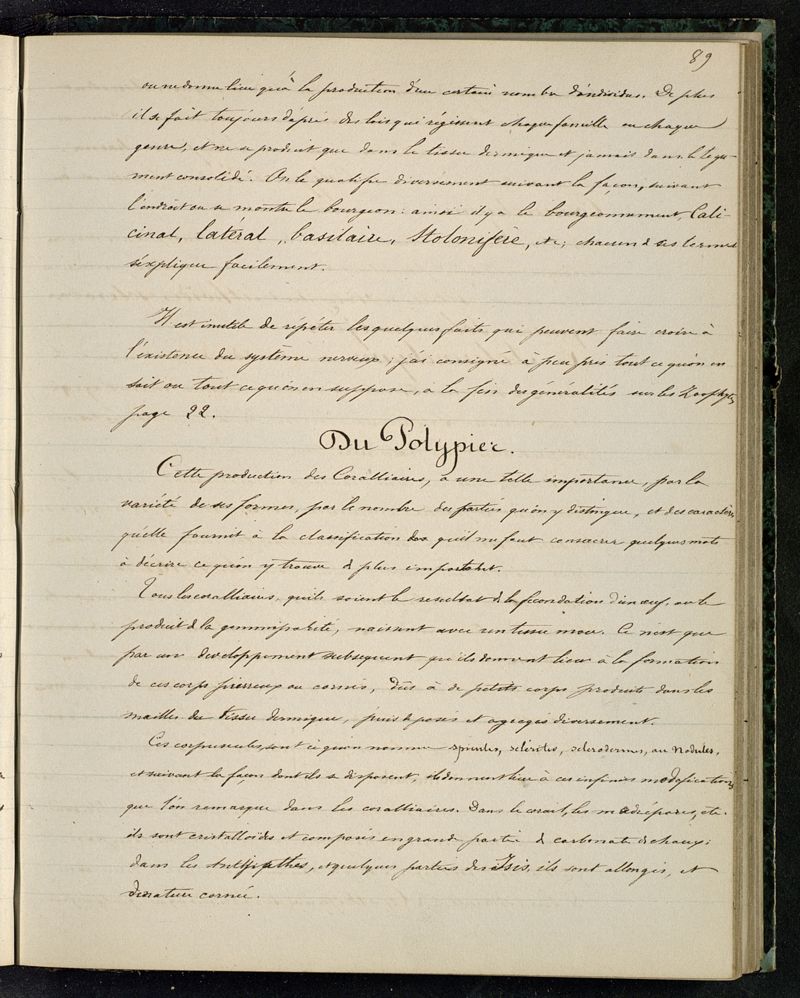 89
ou ne donne lieu qu'à la production d'un certain nombre d'individus. De plus
il se fait toujours d'après des lois qui régissent chaque famille ou chaque
genre, et ne se produit que dans le tissu dermique et jamais dans le tegu-
ment consolidé. On le qualifie diversement suivant la façon, suivant
l'endroit ou se montre le bourgeon: ainsi il y a le bourgeonnement Cali-
cinal, latéral, basilaire, Stolonifère, etc; chacun de ses termes
s'explique facilement.
Il est inutile de répéter les quelques faits qui peuvent faire croire à
l'existence du système nerveux; j'ai consigné à peu près tout ce qu'on en
sait ou tout ce qu'on en suppose, a la fin des généralités sur les Zoophytes
page 22.
Du Polypier.
Cette production des Coralliaires, a une telle importance, par la
variété de ses formes, par le nombre des parties qu'on y distingue, et des caractères
qu'elle fournit à la classification qu'il me faut consacrer quelques mots
à décrire ce qu'on y trouve de plus important.
Tous les coralliaires, qu'ils soient le resultat de la fécondation d'un œuf, ou le
produit de la gemmiparité, naissent avec un tissu mou. Ce n'est que
par un developpement subsequent qu'ils donnent lieu à la formation
de ces corps pierreux ou cornés, dûs à de petits corps produits dans les
mailles du tissu dermique, puis déposés et agrégés diversement.
Ces corpuscules, sont ce qu'on nomme spicules, sclérites, sclerodermes, ou Nodules,
et suivant la façon dont ils se disposent, ils donnent lieu à ces infinies modifications
que l'on remarque dans les coralliaires. Dans le corail, les madrépores, etc.
ils sont cristalloïdes et composés en grande partie de carbonate de chaux;
dans les Antipathes, et quelques parties des Isis, ils sont allongés, et
de nature cornée.